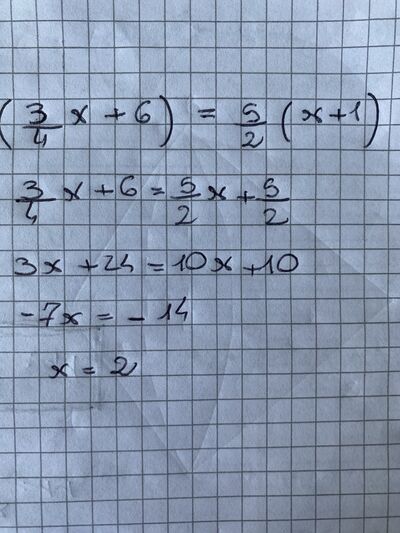 ( 3/4 x + 6 ) = 5/2 ( x + 1 )
3/4 x + 6 = 5/2 x + 5/2
3x + 24 = 10x + 10
-7x = - 14
x = 2